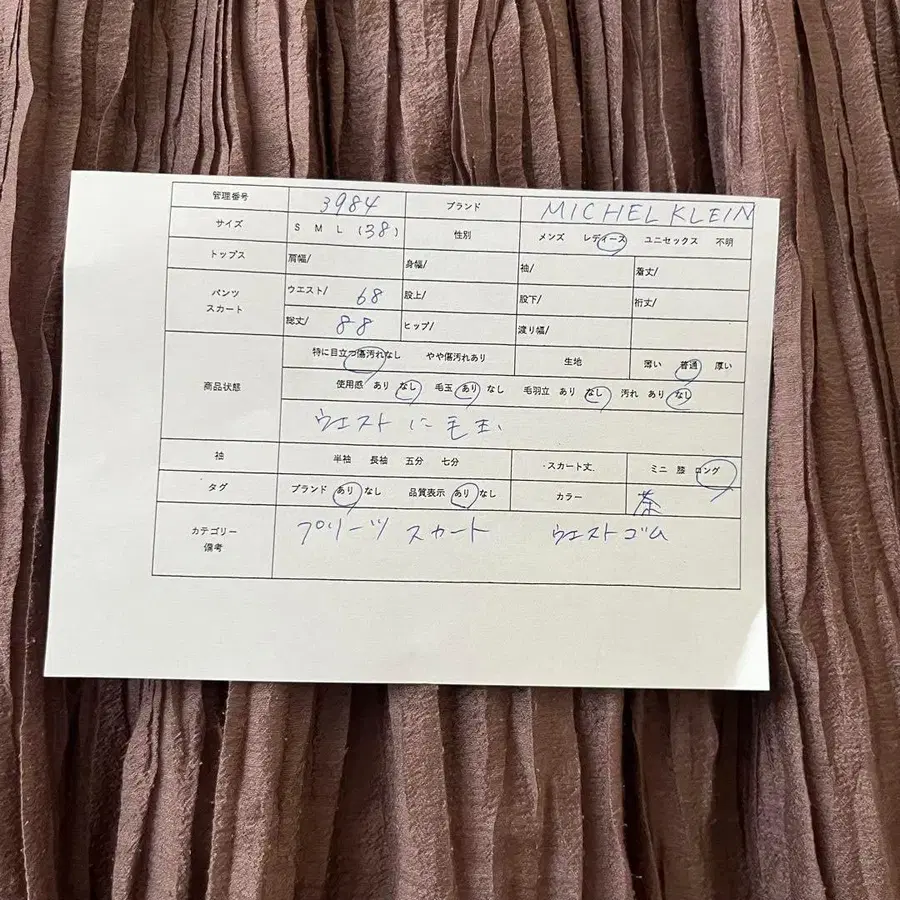 管理番号 3984 ブランド MICHEL KLEIN
サイズ S M L (38) 性別 メンズ レディース ユニセックス 不明
トップス 肩幅/ 身幅/ 袖/ 着丈/
パンツ スカート ウエスト/ 68 股上/ 股下/ 裄丈/
総丈/ 88 ヒップ/ 渡り幅/
商品状態 特に目立つ傷汚れなし やや傷汚れあり 生地 薄い 普通 厚い
使用感 あり なし 毛玉 あり なし 毛羽立 あり なし 汚れ あり なし
ウエストに毛玉、
袖 半袖 長袖 五分 七分 スカート丈 ミニ 膝 ロング
タグ ブランド あり なし 品質表示 あり なし カラー 茶
カテゴリー 備考 プリーツスカート ウエストゴム